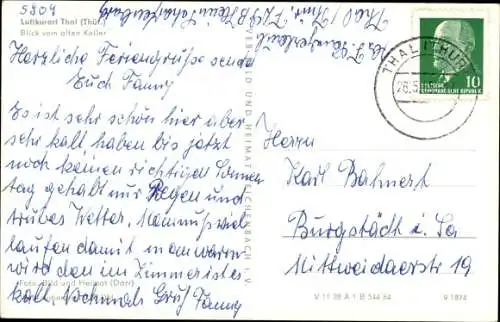 5804
Luftkurort Thal (Thür.)
Blick vom alten Keller
Herzliche Feriengrüße sendet
Euch Fanny
Es ist sehr schön hier aber
sehr kalt haben bis jetzt
noch keinen richtigen Sonnen
tag gehabt nur Regen und
trübes Wetter, man muß viel
laufen damit man warm
wird den im Zimmer ist es
kalt Nochmals Gruß Fanny
Foto: Bild und Heimat (Darr)
VERLAG BILD UND HEIMAT REICHENBACH i. V.
THAL (THÜR)
26.5.
10
DEUTSCHE DEMOKRATISCHE REPUBLIK
Herrn
Karl Bahnert
Burgstädt i. Sa
Mittweidaerstr 19
V 11 28 A 1 B 544/64
9 1874